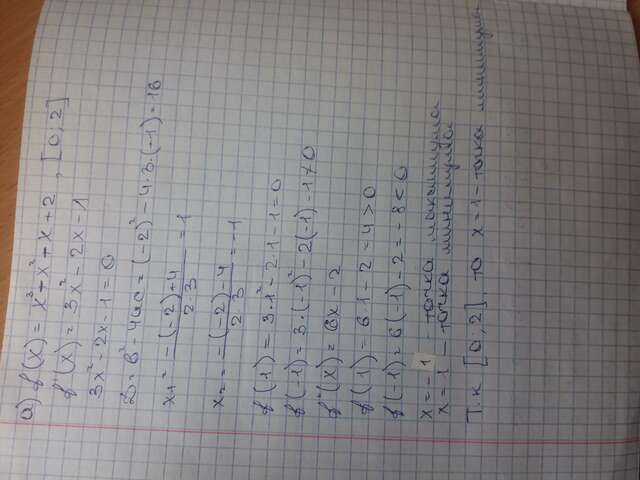 а) f(x) = x³ + x² + x + 2, [0; 2]
f'(x) = 3x² - 2x - 1
3x² - 2x - 1 = 0
D = b² - 4ac = (-2)² - 4·3·(-1) = 16
x₁ = (-(-2)+4)/(2·3) = 1
x₂ = (-(-2)-4)/(2·3) = -1
f'(1) = 3·1² - 2·1 - 1 = 0
f'(-1) = 3·(-1)² - 2(-1) - 1 ≠ 0
f''(x) = 6x - 2
f(1) = 6·1 - 2 = 4 > 0
f(-1) = 6(-1) - 2 = -8 < 0
x = -1 точка максимума
x = 1 - точка минимума
Т.к [0; 2] то x = 1 - точка минимума